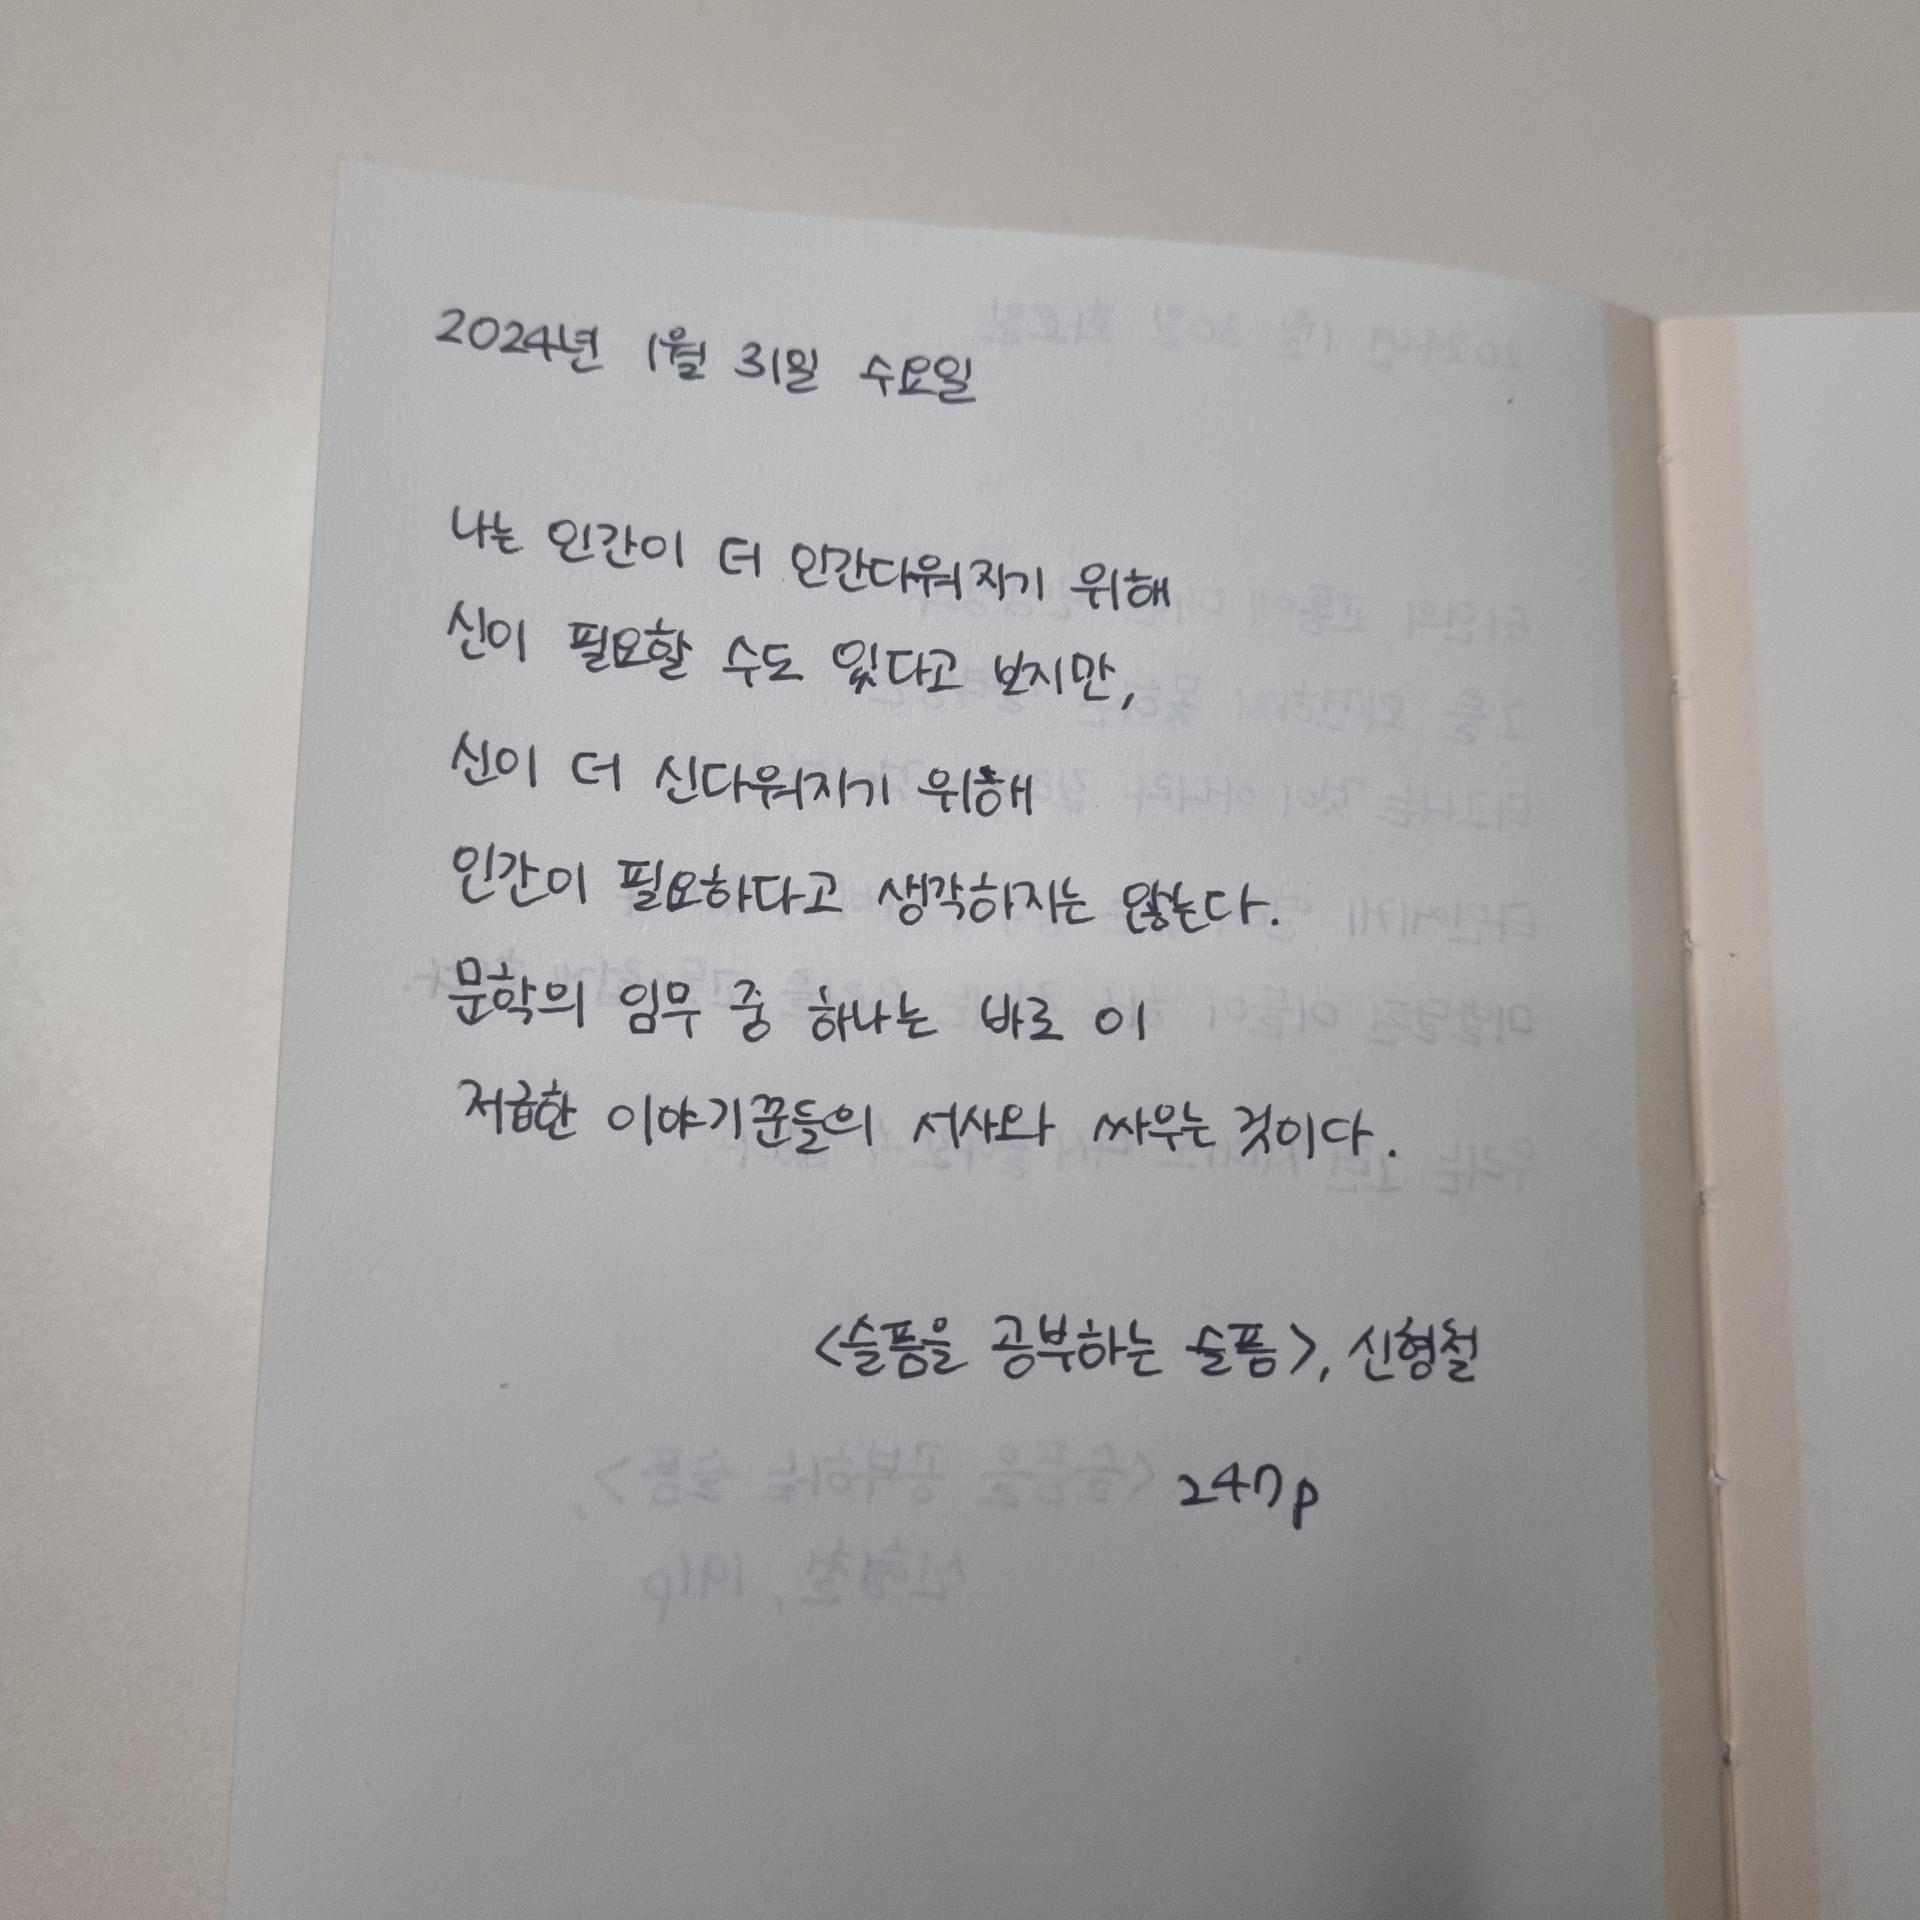 2024년 1월 31일 수요일
나는 인간이 더 인간다워지기 위해
신이 필요할 수도 있다고 보지만,
신이 더 신다워지기 위해
인간이 필요하다고 생각하지는 않는다.
문학의 임무 중 하나는 바로 이
저급한 이야기꾼들의 서사와 싸우는 것이다.
<슬픔을 공부하는 슬픔>, 신형철
247p